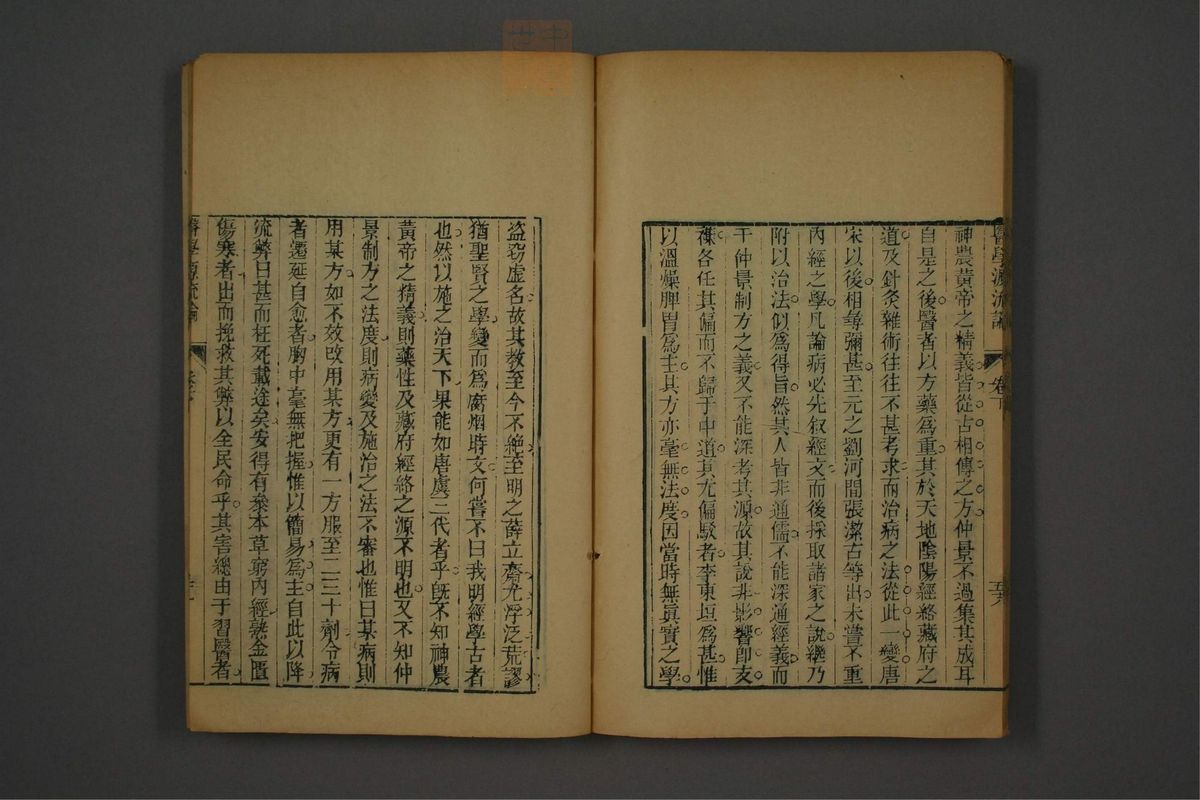 醫學源流論 卷下
神農黃帝之精義皆從古相傳之方仲景不過集其成耳
自是之後醫者以方藥為重其於天地陰陽經絡藏府之
道及針灸雜術往往不甚考求而治病之法從此一變唐
宋以後相尋彌甚至元之劉河間張潔古等出未嘗不重
內經之學凡論病必先叙經文而後採取諸家之說繼乃
附以治法似為得旨然其人皆非通儒不能深通經義而
于仲景制方之義又不能深考其源故其說非影響即支
離各任其偏而不歸于中道其尤偏駁者李東垣為甚惟
以溫燥脾胃為主其方亦毫無法度因當時無眞實之學
盜竊虛名故其教至今不絕至明之薛立齋尤浮泛荒謬
猶聖賢之學變而為腐烟時文何嘗不曰我明經學古者
也然以施之治天下果能如唐虞三代者乎旣不知神農
黃帝之精義則藥性及藏府經絡之源不明也又不知仲
景制方之法度則病變及施治之法不審也惟曰某病則
用某方如不效改用某方更有一方服至二三十劑令病
者遷延自愈者胸中毫無把握惟以簡易為主自此以降
流弊日甚而枉死載途矣安得有參本草窮內經熟金匱
傷寒者出而挽救其弊以全民命乎其害總由于習醫者